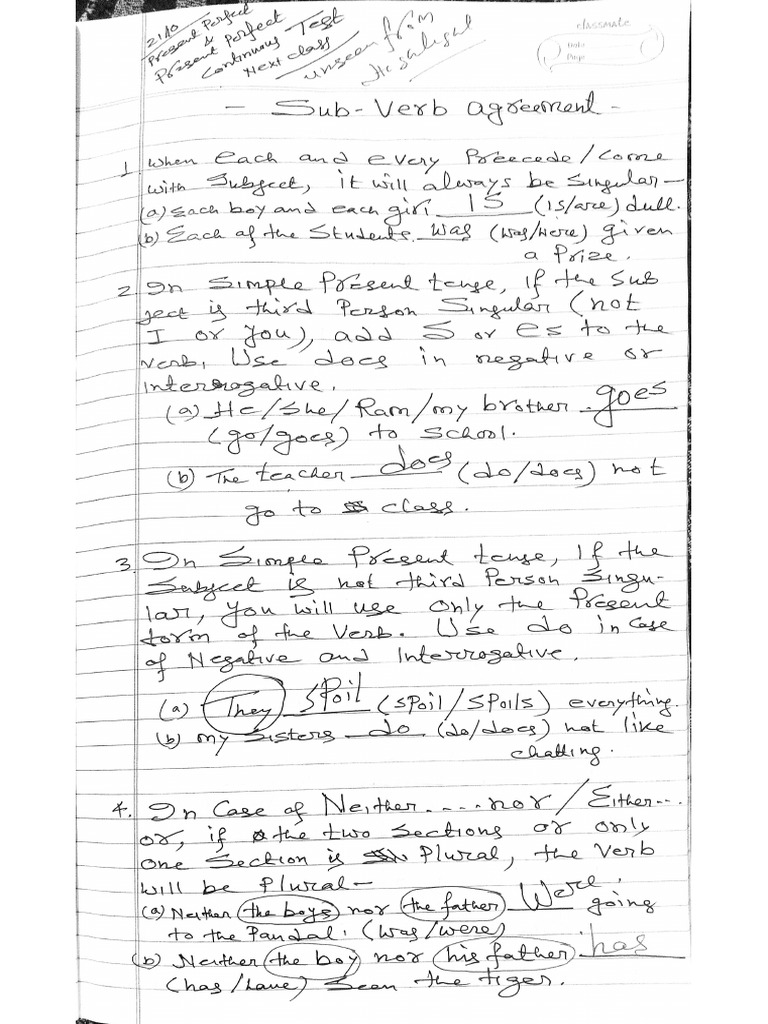 21/10
Present Perfect
&
Present Perfect
Continuous Test
Next class
unseen from
classmate
Date
Page
- Sub-Verb agreement -
1 When each and every Preecede/Come
with Subject, it will always be Singular-
(a) Each boy and each girl IS (is/are) dull.
(b) Each of the Students was (was/were) given
a Prize.
2. In Simple Present tense, if the Sub
ject is third Person Singular (not
I or You), add S or es to the
verb, Use does in negative or
interrogative.
(a) He/She/Ram/my brother goes
(go/goes) to School.
(b) The teacher does (do/does) not
go to class.
3. In Simple Present tense, If the
Subject is not third Person Singu-
lar, you will use only the Present
form of the Verb. Use do in Case
of Negative and Interrogative.
(a) They spoil (spoil/spoils) everything.
(b) my Sisters do (do/does) not like
chatting.
4. In Case of Neither....nor/Either...
or, if the two Sections or only
one Section is Plural, the Verb
will be Plural-
(a) Neither the boys nor the father Were going
to the Pandal. (was/were)
(b) Neither the boy nor his father has
(has/have) Seen the tiger.